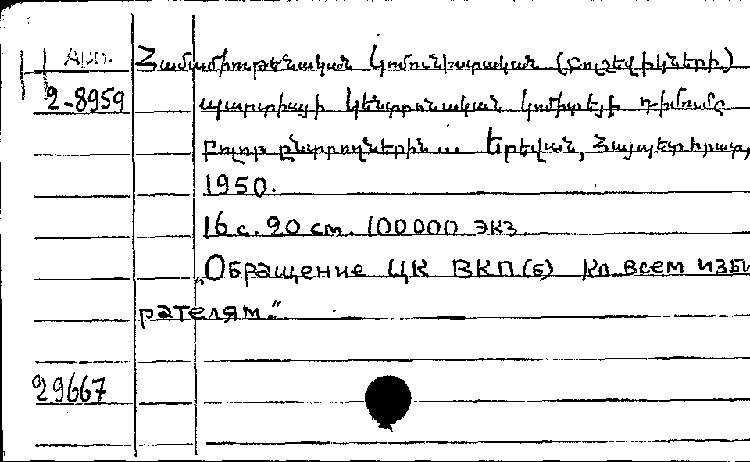 Арм. Համամիութենական Կոմունիստական (բոլշեվիկների)
2-8959 պարտիայի կենտրոնական կոմիտեյի դիմումը
բոլոր ընտրողներին... Երեվան, Հայպետհրատ,
1950.
16 с. 20 см. 100000 экз
„Обращение ЦК ВКП(б) ко всем изби
рателям."
29667